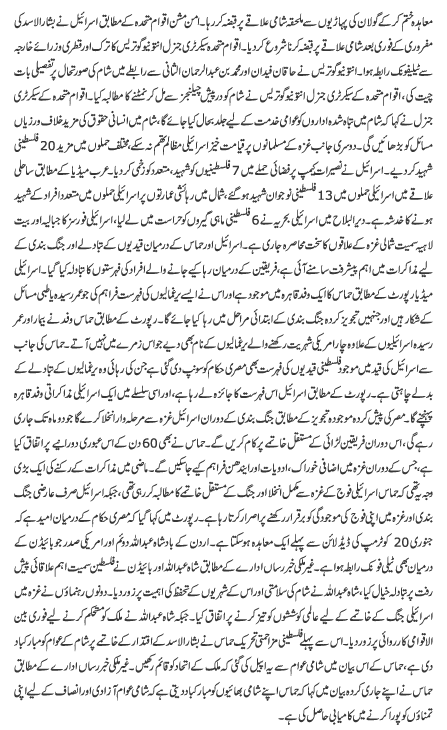 معاہدہ ختم کر کے گولان کی پہاڑیوں سے ملحقہ شامی علاقے پر قبضہ کر رہا۔ امن مشن اقوام متحدہ کے مطابق اسرائیل نے بشار الاسد کی
مفروری کے فوری بعد شامی علاقے پر قبضہ کرنا شروع کر دیا۔ اقوام متحدہ کے سیکرٹری جنرل انتونیو گوتریس کا ترک اور قطری وزرائے خارجہ
سے ٹیلیفونک رابطہ ہوا۔ انتونیو گوتریس نے حاقان فیدان اور محمد بن عبدالرحمان الثانی سے رابطے میں شام کی صورتحال پر تفصیلی بات
چیت کی، اقوام متحدہ کے سیکرٹری جنرل انتونیو گوتریس نے شام کو درپیش چیلنجز سے مل کر نمٹنے کا مطالبہ کیا۔ اقوام متحدہ کے سیکرٹری
جنرل نے کہا کہ شام میں تباہ شدہ اداروں کو عوامی خدمت کے لیے جلد بحال کیا جائے گا، شام میں انسانی حقوق کی مزید خلاف ورزیاں
مسائل کو بڑھائیں گی۔ دوسری جانب غزہ کے مسلمانوں پر قیامت خیز اسرائیلی مظالم تھم نہ سکے مختلف حملوں میں مزید 20 فلسطینی
شہید کر دیے۔ اسرائیل نے نصیرات کیمپ پر فضائی حملے میں 7 فلسطینیوں کو شہید، متعدد کو زخمی کر دیا۔ عرب میڈیا کے مطابق ساحلی
علاقے میں اسرائیلی حملوں میں 13 فلسطینی نوجوان شہید ہو گئے، شمال میں رہائشی عمارتوں پر اسرائیلی حملوں میں متعدد افراد کے شہید
ہونے کا خدشہ ہے۔ دیر البلاح میں اسرائیلی بحریہ نے 6 فلسطینی ماہی گیروں کو حراست میں لے لیا، اسرائیلی فورسز کا جبالیہ اور بیت
لاہیہ سمیت شمالی غزہ کے علاقوں کا سخت محاصرہ جاری ہے۔ اسرائیل اور حماس کے درمیان قیدیوں کے تبادلے اور جنگ بندی کے
لیے مذاکرات میں اہم پیشرفت سامنے آئی ہے، فریقین کے درمیان رہا کیے جانے والے افراد کی فہرستوں کا تبادلہ کیا گیا۔ اسرائیلی
میڈیا رپورٹ کے مطابق حماس کا ایک وفد قاہرہ میں موجود ہے اور اس نے ایسے یرغمالیوں کی فہرست فراہم کی جو عمر رسیدہ یا طبی مسائل
کے شکار ہیں اور جنہیں تجویز کردہ جنگ بندی کے ابتدائی مراحل میں رہا کیا جائے گا۔ رپورٹ کے مطابق حماس وفد نے بیمار اور عمر
رسیدہ اسرائیلیوں کے علاوہ چار امریکی شہریت رکھنے والے یرغمالیوں کے نام بھی دیے جو اس زمرے میں نہیں آتے۔ حماس کی جانب
سے اسرائیل کی قید میں موجود فلسطینی قیدیوں کی فہرست بھی مصری حکام کو سونپ دی گئی ہے جن کی رہائی وہ یرغمالیوں کے تبادلے کے
بدلے چاہتی ہے۔ رپورٹ کے مطابق اسرائیل اس فہرست کا جائزہ لے رہا ہے، اور اسی سلسلے میں ایک اسرائیلی مذاکراتی وفد قاہرہ
پہنچے گا۔ مصر کی پیش کردہ موجودہ تجویز کے مطابق جنگ بندی کے دوران اسرائیل غزہ سے مرحلہ وار انخلا کرے گا جو دو ماہ تک جاری
رہے گی، اس دوران فریقین لڑائی کے مستقل خاتمے پر کام کریں گے۔ حماس نے بھی 60 دن کے اس عبوری دورانیے پر اتفاق کیا
ہے، جس کے دوران غزہ میں اضافی خوراک، ادویات اور ایندھن فراہم کیے جاسکیں گے۔ ماضی میں مذاکرات کے رکنے کی ایک بڑی
وجہ یہ تھی کہ حماس اسرائیلی فوج کے غزہ سے مکمل انخلا اور جنگ کے مستقل خاتمے کا مطالبہ کر رہی تھی، جبکہ اسرائیل صرف عارضی جنگ
بندی اور غزہ میں اپنی فوج کی موجودگی کو برقرار رکھنے پر اصرار کرتا رہا ہے۔ رپورٹ میں کہا گیا کہ مصری حکام کے درمیان امید ہے کہ
جنوری 20 کو ٹرمپ کی ڈیڈ لائن سے پہلے ایک معاہدہ ہوسکتا ہے۔ اردن کے بادشاہ عبداللہ دوئم اور امریکی صدر جو بائیڈن کے
درمیان بھی ٹیلی فونک رابطہ ہوا ہے۔ غیر ملکی خبر رساں ادارے کے مطابق شاہ عبداللہ اور بائیڈن نے فلسطین سمیت اہم علاقائی پیش
رفت پر تبادلہ خیال کیا، شاہ عبداللہ نے شام کی سلامتی اور اس کے شہریوں کے تحفظ کی اہمیت پر زور دیا۔ دونوں رہنماؤں نے غزہ میں
اسرائیلی جنگ کے خاتمے کے لیے عالمی کوششوں کو تیز کرنے پر اتفاق کیا۔ جبکہ شاہ عبداللہ نے ملک کو مستحکم کرنے کے لیے فوری بین
الاقوامی کارروائی پر زور دیا۔ اس سے پہلے فلسطینی مزاحمتی تحریک حماس نے بشار الاسد کے اقتدار کے خاتمے پر شام کے عوام کو مبارکباد
دی ہے، حماس کے اس بیان میں شامی عوام سے یہ اپیل کی گئی کہ ملک کے اتحاد کو قائم رکھیں۔ غیر ملکی خبر رساں ادارے کے مطابق
حماس نے اپنے جاری کردہ بیان میں کہا کہ حماس اپنے شامی بھائیوں کو مبارکباد دیتی ہے کہ شامی عوام آزادی اور انصاف کے لیے اپنی
تمناؤں کو پورا کرنے میں کامیابی حاصل کی ہے۔